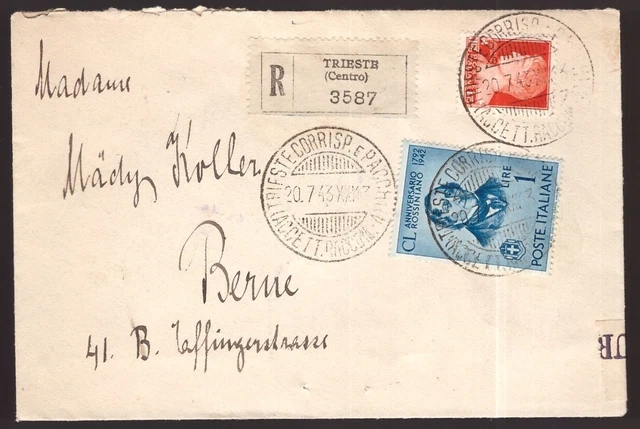 Madame
Mädy Koller
Berne
41. B. Taffingerstrasse
R
TRIESTE
(Centro)
3587
TRIESTE CORRISP. E PACCHI
20.7.43 XXI
(ACCETT. RACCOM.
CL ANNIVERSARIO ROSSINIANO
1792
1942
LIRE 1
POSTE ITALIANE